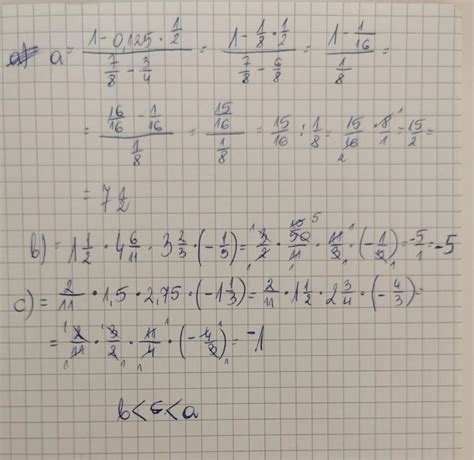 a) a = (1 - 0,125 · 1/2) / (7/8 - 3/4) = (1 - 1/8 · 1/2) / (7/8 - 6/8) = (1 - 1/16) / (1/8) =
= (16/16 - 1/16) / (1/8) = (15/16) / (1/8) = 15/16 : 1/8 = 15/16 · 8/1 = 15/2 =
= 7 1/2
b) = 1 1/2 · 4 6/11 · 3 2/3 · (-1/5) = 3/2 · 50/11 · 11/3 · (-1/5) = -5/1 = -5
c) = 2/11 · 1,5 · 2,75 · (-1 1/3) = 2/11 · 1 1/2 · 2 3/4 · (-4/3) =
= 2/11 · 3/2 · 11/4 · (-4/3) = -1
b < c < a